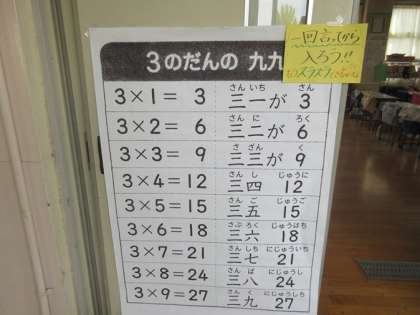 3のだんの 九九
一回言ってから
入ろう!!
3×1= 3 三一が 3
さんいち さん
3×2= 6 三二が 6
さん に ろく
3×3= 9 三三が 9
さ ざん く
3×4=12 三四 12
さん し じゅうに
3×5=15 三五 15
さん ご じゅうご
3×6=18 三六 18
さぶ ろく じゅうはち
3×7=21 三七 21
さん しち にじゅういち
3×8=24 三八 24
さん ぱ にじゅうし
3×9=27 三九 27
さん く にじゅうしち